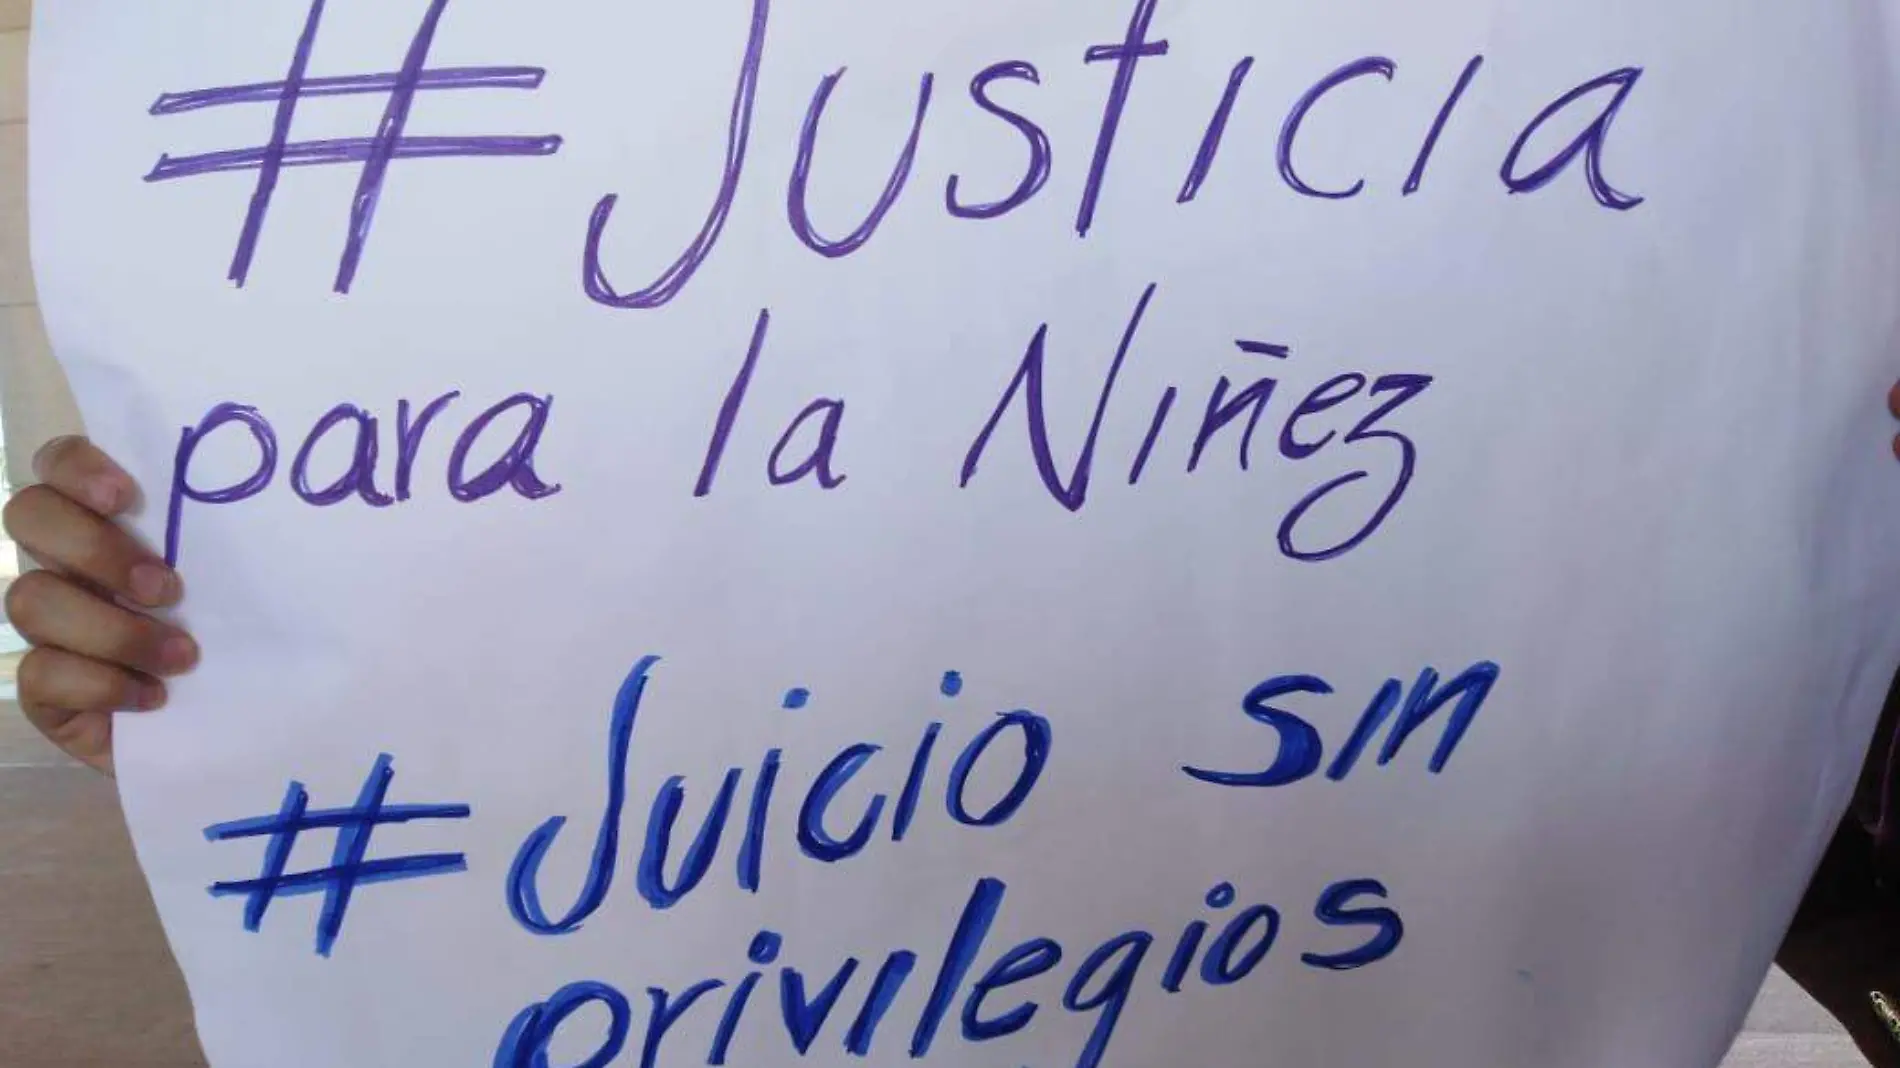 #Justicia
para la Niñez
#Juicio sin
privilegios